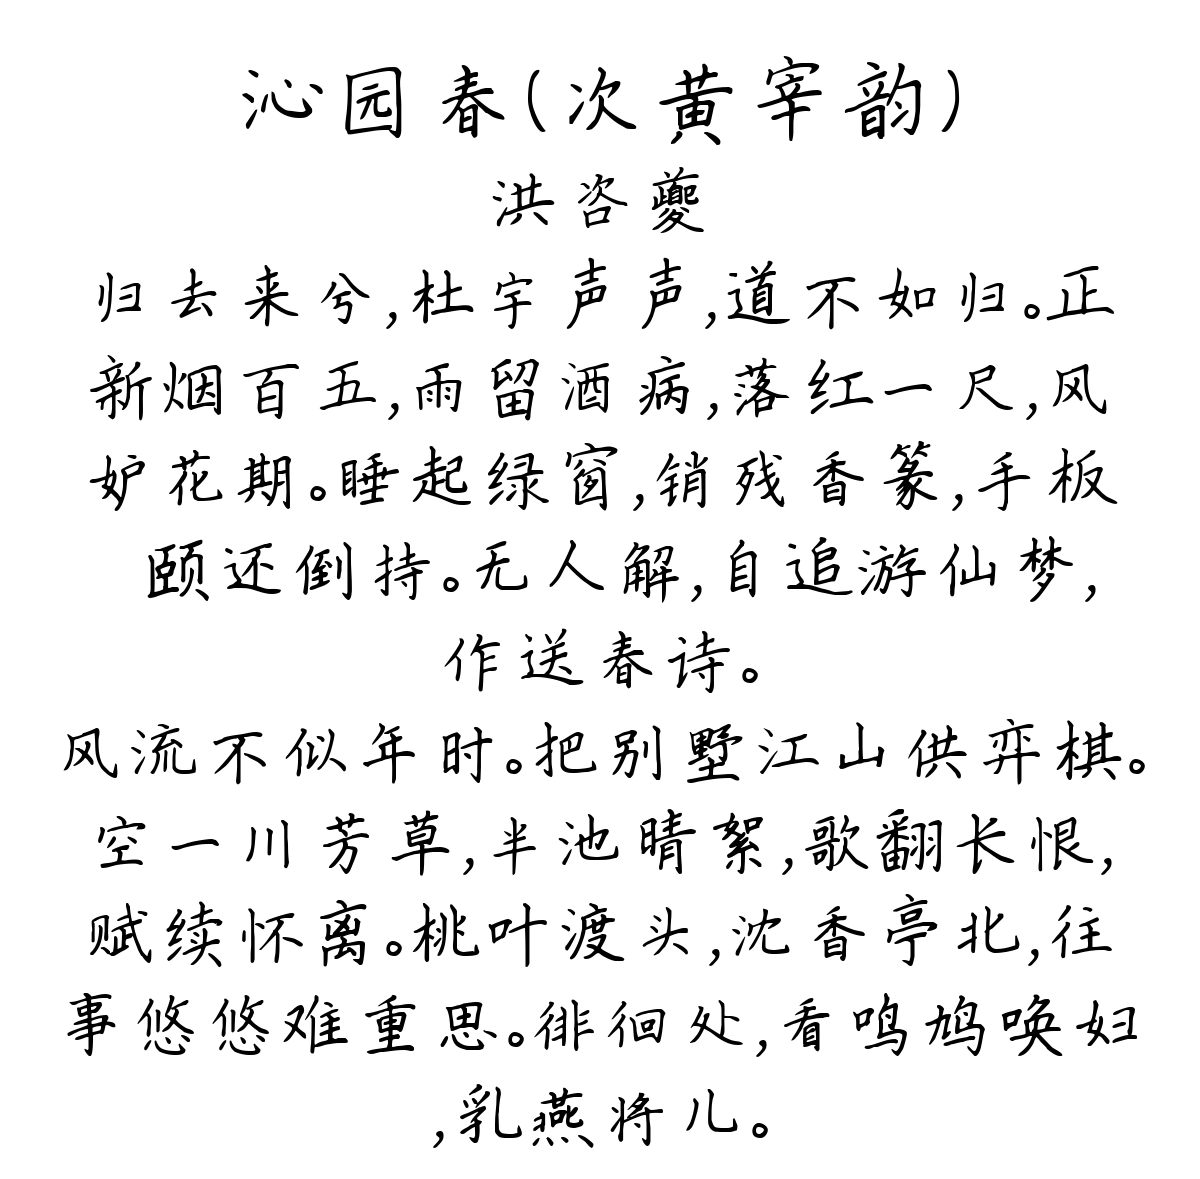 沁园春(次黄宰韵)
洪咨夔
归去来兮,杜宇声声,道不如归。正
新烟百五,雨留酒病,落红一尺,风
妒花期。睡起绿窗,销残香篆,手板
颐还倒持。无人解,自追游仙梦,
作送春诗。
风流不似年时。把别墅江山供弈棋。
空一川芳草,半池晴絮,歌翻长恨,
赋续怀离。桃叶渡头,沈香亭北,往
事悠悠难重思。徘徊处,看鸣鸠唤妇
,乳燕将儿。